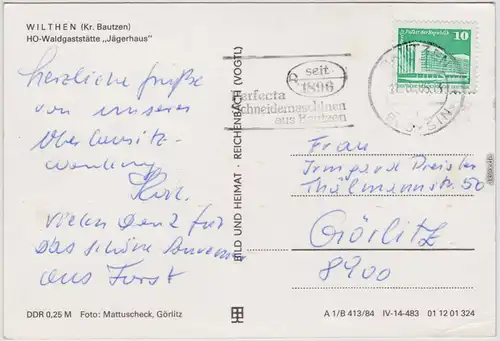 WILTHEN (Kr. Bautzen)
HO-Waldgaststätte „Jägerhaus"
herzliche Grüße
von unserer
Oberlausitz-
wanderung
vielen Dank für
das schöne
aus Forst
DDR 0,25 M Foto: Mattuscheck, Görlitz
BILD UND HEIMAT · REICHENBACH (VOGTL)
seit
1896
Perfecta
Schneidemaschinen
aus Bautzen
Palast der Republik 10
DDR
Frau
Irmgard Preisler
Thälmannstr. 50
Görlitz
8900
A 1/B 413/84 IV-14-483 01 12 01 324